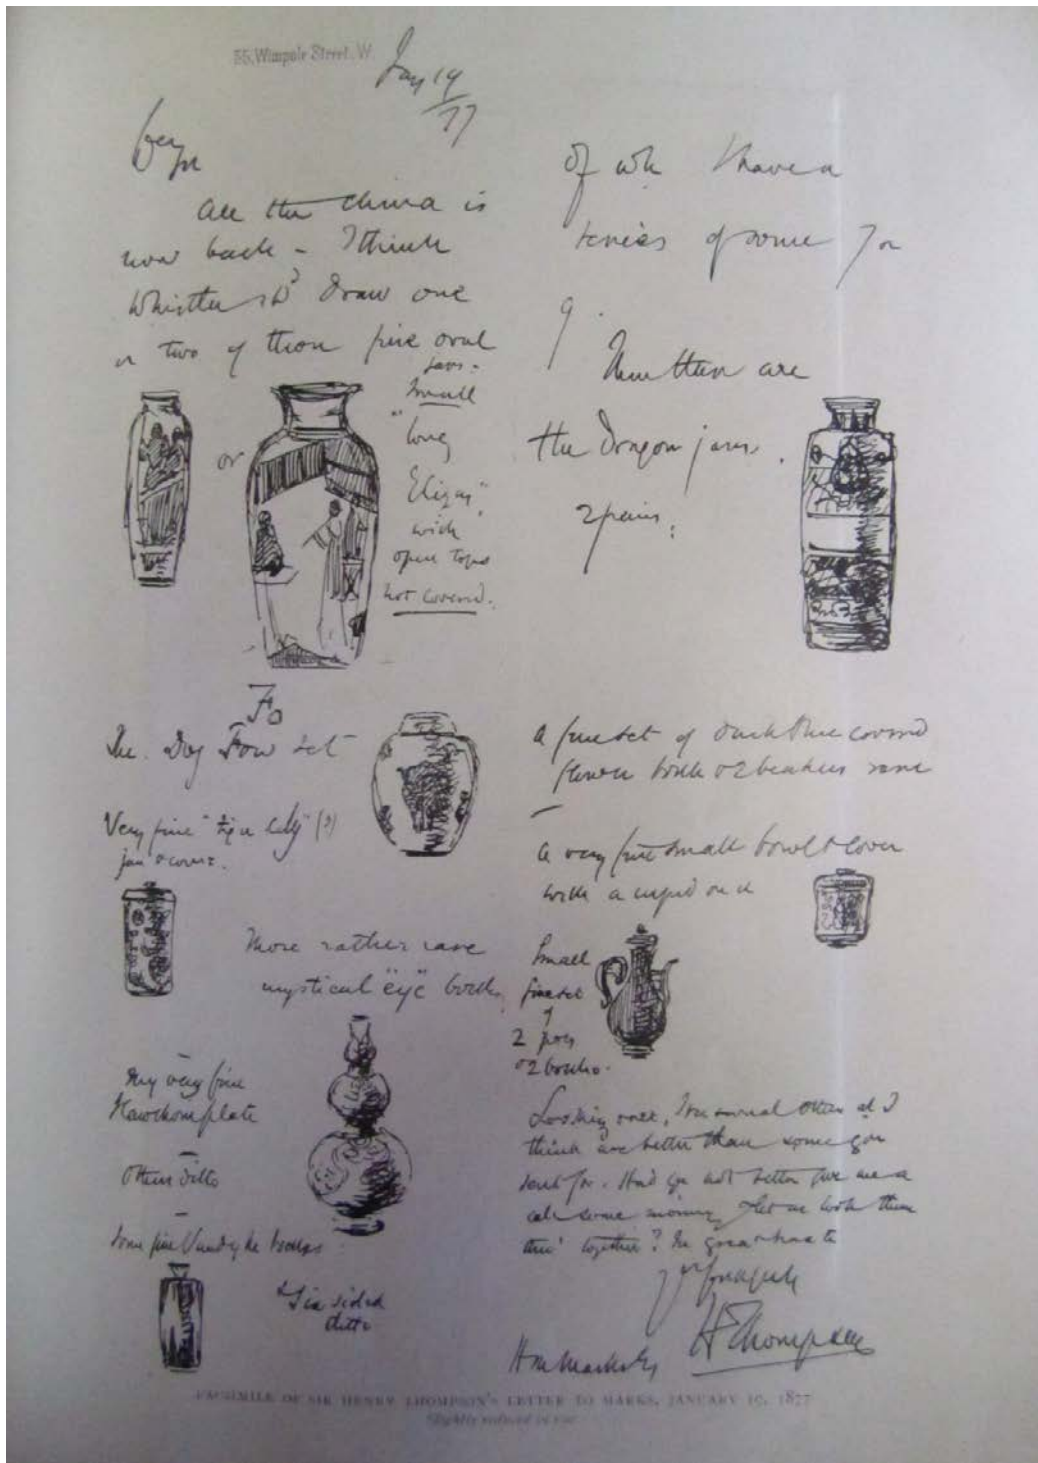 35, Wimpole Street, W.
Jany 19
/77
All the china is
now back – I think
Whistler shd draw one
or two of those fine oval
jars –
small
"long
Elizas"
with
open tops
not covered.
or
of wh I have a
series of some 7 or
9.
Then there are
the Dragon jars.
2 pairs.
Fo
The Dog Fow set
Very fine "tiger lily" (?)
jar & cover.
More rather rare
mystical "eye" bottles
My very fine
Hawthorn plate
Others ditto
Some fine Vandyke bottles
& Six sided
ditto
A fine set of dark blue covered
flower bottle & 2 beakers rare
A very fine small bowl & cover
with a cupid on it
Small
fine set
of
2 pots
& 2 bottles.
Looking over, I see several others wh I
think are better than some you
sent for. Had you not better give me a
call some morning & let us look them
thro' together? In great haste
Yrs
H Thompson
Marks Esq
FACSIMILE OF SIR HENRY THOMPSON'S LETTER TO MARKS, JANUARY 19, 1877
Slightly reduced in size